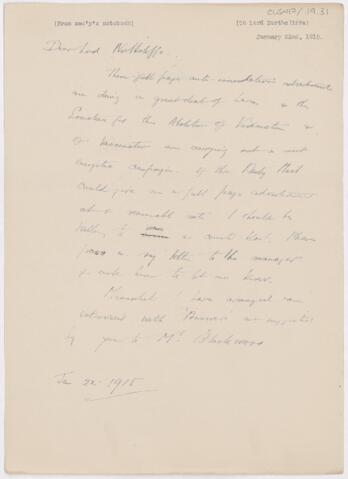 CUSHP/19.31
(From sec'y's notebook)
(to Lord Northcliffe)
January 22nd, 1915.
Dear Lord Northcliffe:
These full page anti-inoculation advertisements
are doing a great deal of harm & the
Societies for the Abolition of Vivisection &
of Vaccination are carrying out a most
energetic campaign. If the Daily Mail
could give us a full page advertisement
at a reasonable rate I should be
willing to a counter blast. Please
pass on my letter to the manager
& ask him to let me know.
Meanwhile I have arranged an
interview with 'Pearson's' as suggested
by you to Mr Blackwood
Jan 22: 1915